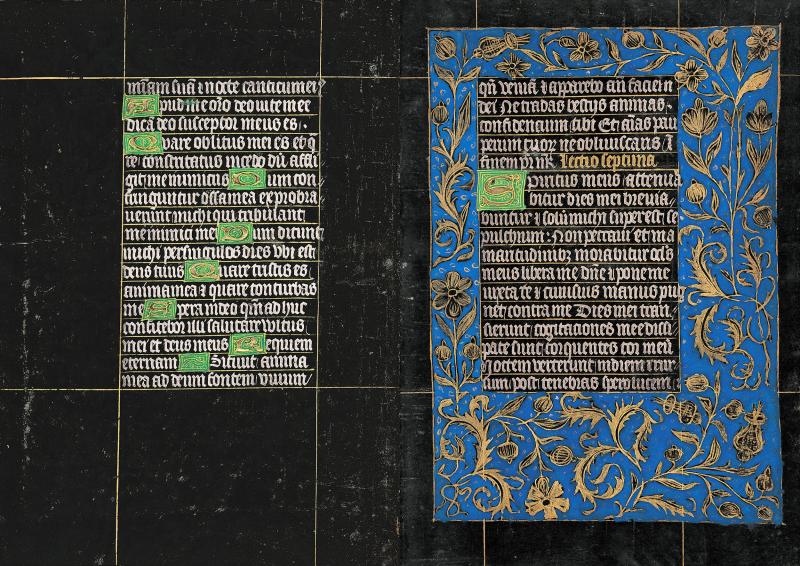 mīam suā ⁊ nocte canticum ei
Apud me orō deo vite mee
dicā deo susceptor meus es
Quare oblitus mei es et q
re contristatus incedo dū affli
git me inimicus Dum con
fringuntur ossa mea exprobra
verunt michi qui tribulant
me inimici mei Dum dicunt
michi per singulos dies vbi est
deus tuus Quare tristis es
anima mea ⁊ quare conturbas
me Spera in deo qm̄ ad huc
confitebor illi salutare vultus
mei et deus meus Requiem
eternam Sitiuit anima
mea ad deum fontem viuum
qn̄ veniā ⁊ apparebo an̄ faciem
dei Ne tradas bestijs animas
confidencium tibi Et aīas pau
perum tuoꝝ ne obliuiscaris i
finem Lectio septima
Spiritus meus attenua
bitur dies mei breuia
buntur ⁊ solū michi superest se
pulchrum Non peccaui et in a
maritudinibꝫ morabitur ocls
meus libera me dn̄e ⁊ pone me
iuxta te ⁊ cuiusuis manus pug
net contra me Dies mei tran
sierunt cogitaciones mee dissi
pate sunt torquentes cor meū
Noctem verterunt in diem ⁊ rur
sum post tenebras spero lucem